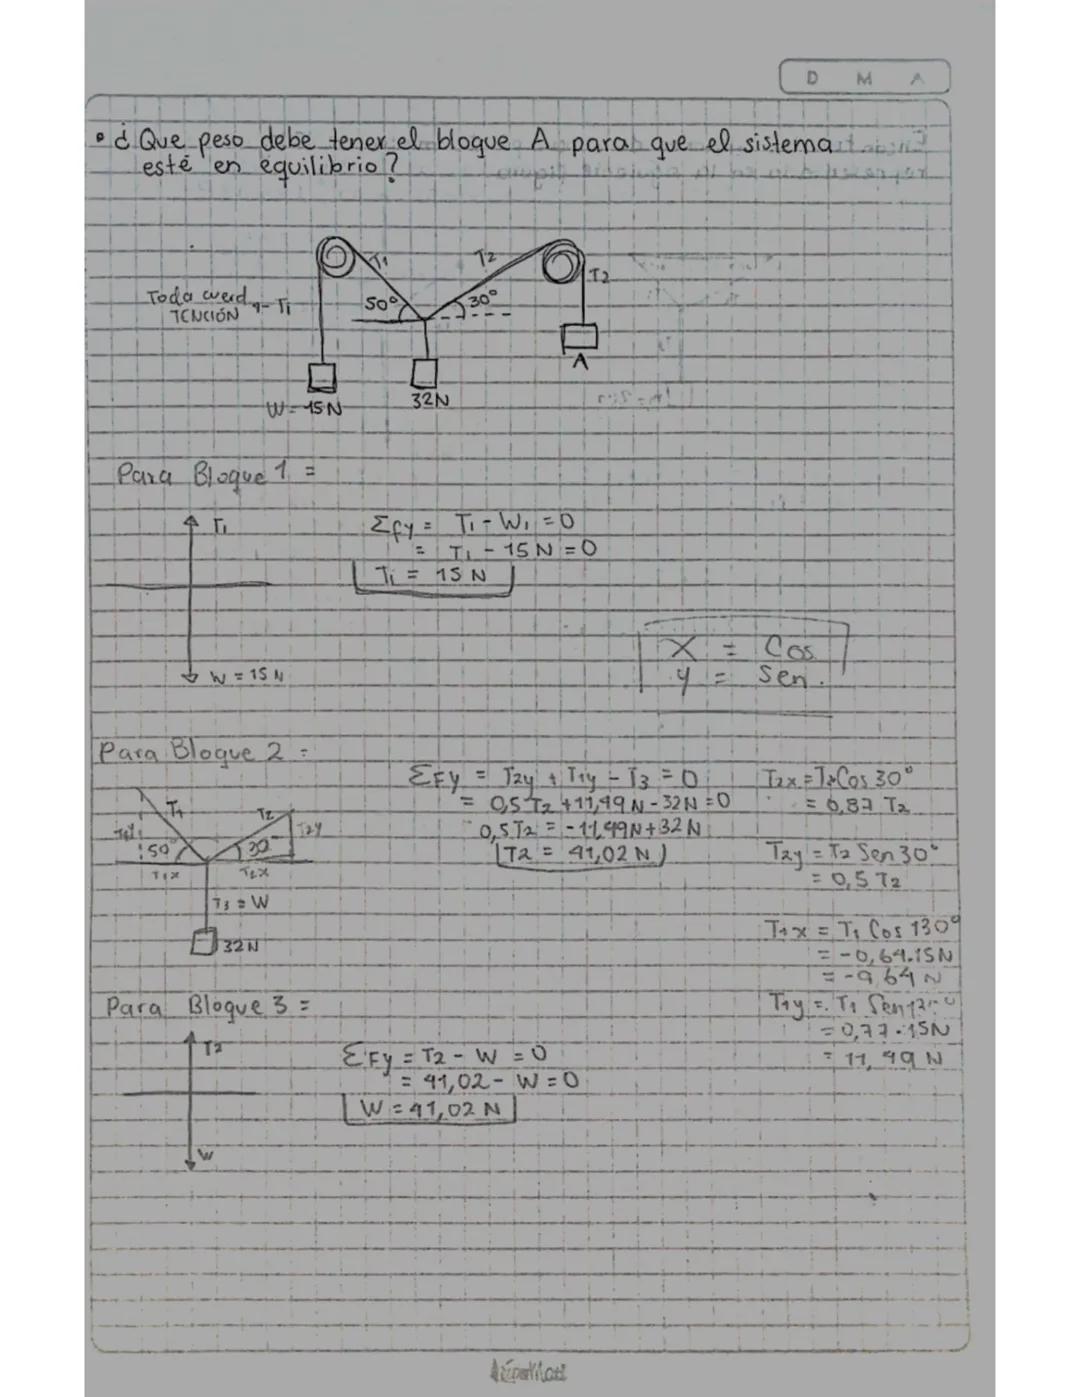 D M A
• ¿ Que peso debe tener el bloque A para que el sistema
esté en equilibrio?
T1
T2
T2
50°
30°
Toda cuerd
TENCIÓN
T1
A
W = 15N
32N
Para Bloque 1 =
T1
Σfy = T1 - W1 = 0
= T1 - 15 N = 0
T1 = 15 N
W = 15 N
X = Cos
y = Sen.
Para Bloque 2 =
T1
T2
T2y
50°
30°
T1x
T2x
T3 = W
32N
ΣFy = T2y + T1y - T3 = 0
= 0,5 T2 + 11,49 N - 32N = 0
0,5 T2 = - 11,49N + 32 N
T2 = 41,02 N
T2x = T2 Cos 30°
= 0,87 T2
T2y = T2 Sen 30°
= 0,5 T2
T1x = T1 Cos 130°
= -0,64.15N
= -9,64 N
T1y = T1 Sen
= 0,77 . 15N
= 11,49 N
Para Bloque 3 =
T2
ΣFy = T2 - W = 0
= 41,02 - W = 0
W = 41,02 N
W